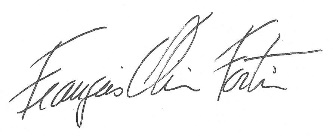 François Olivier Fortin